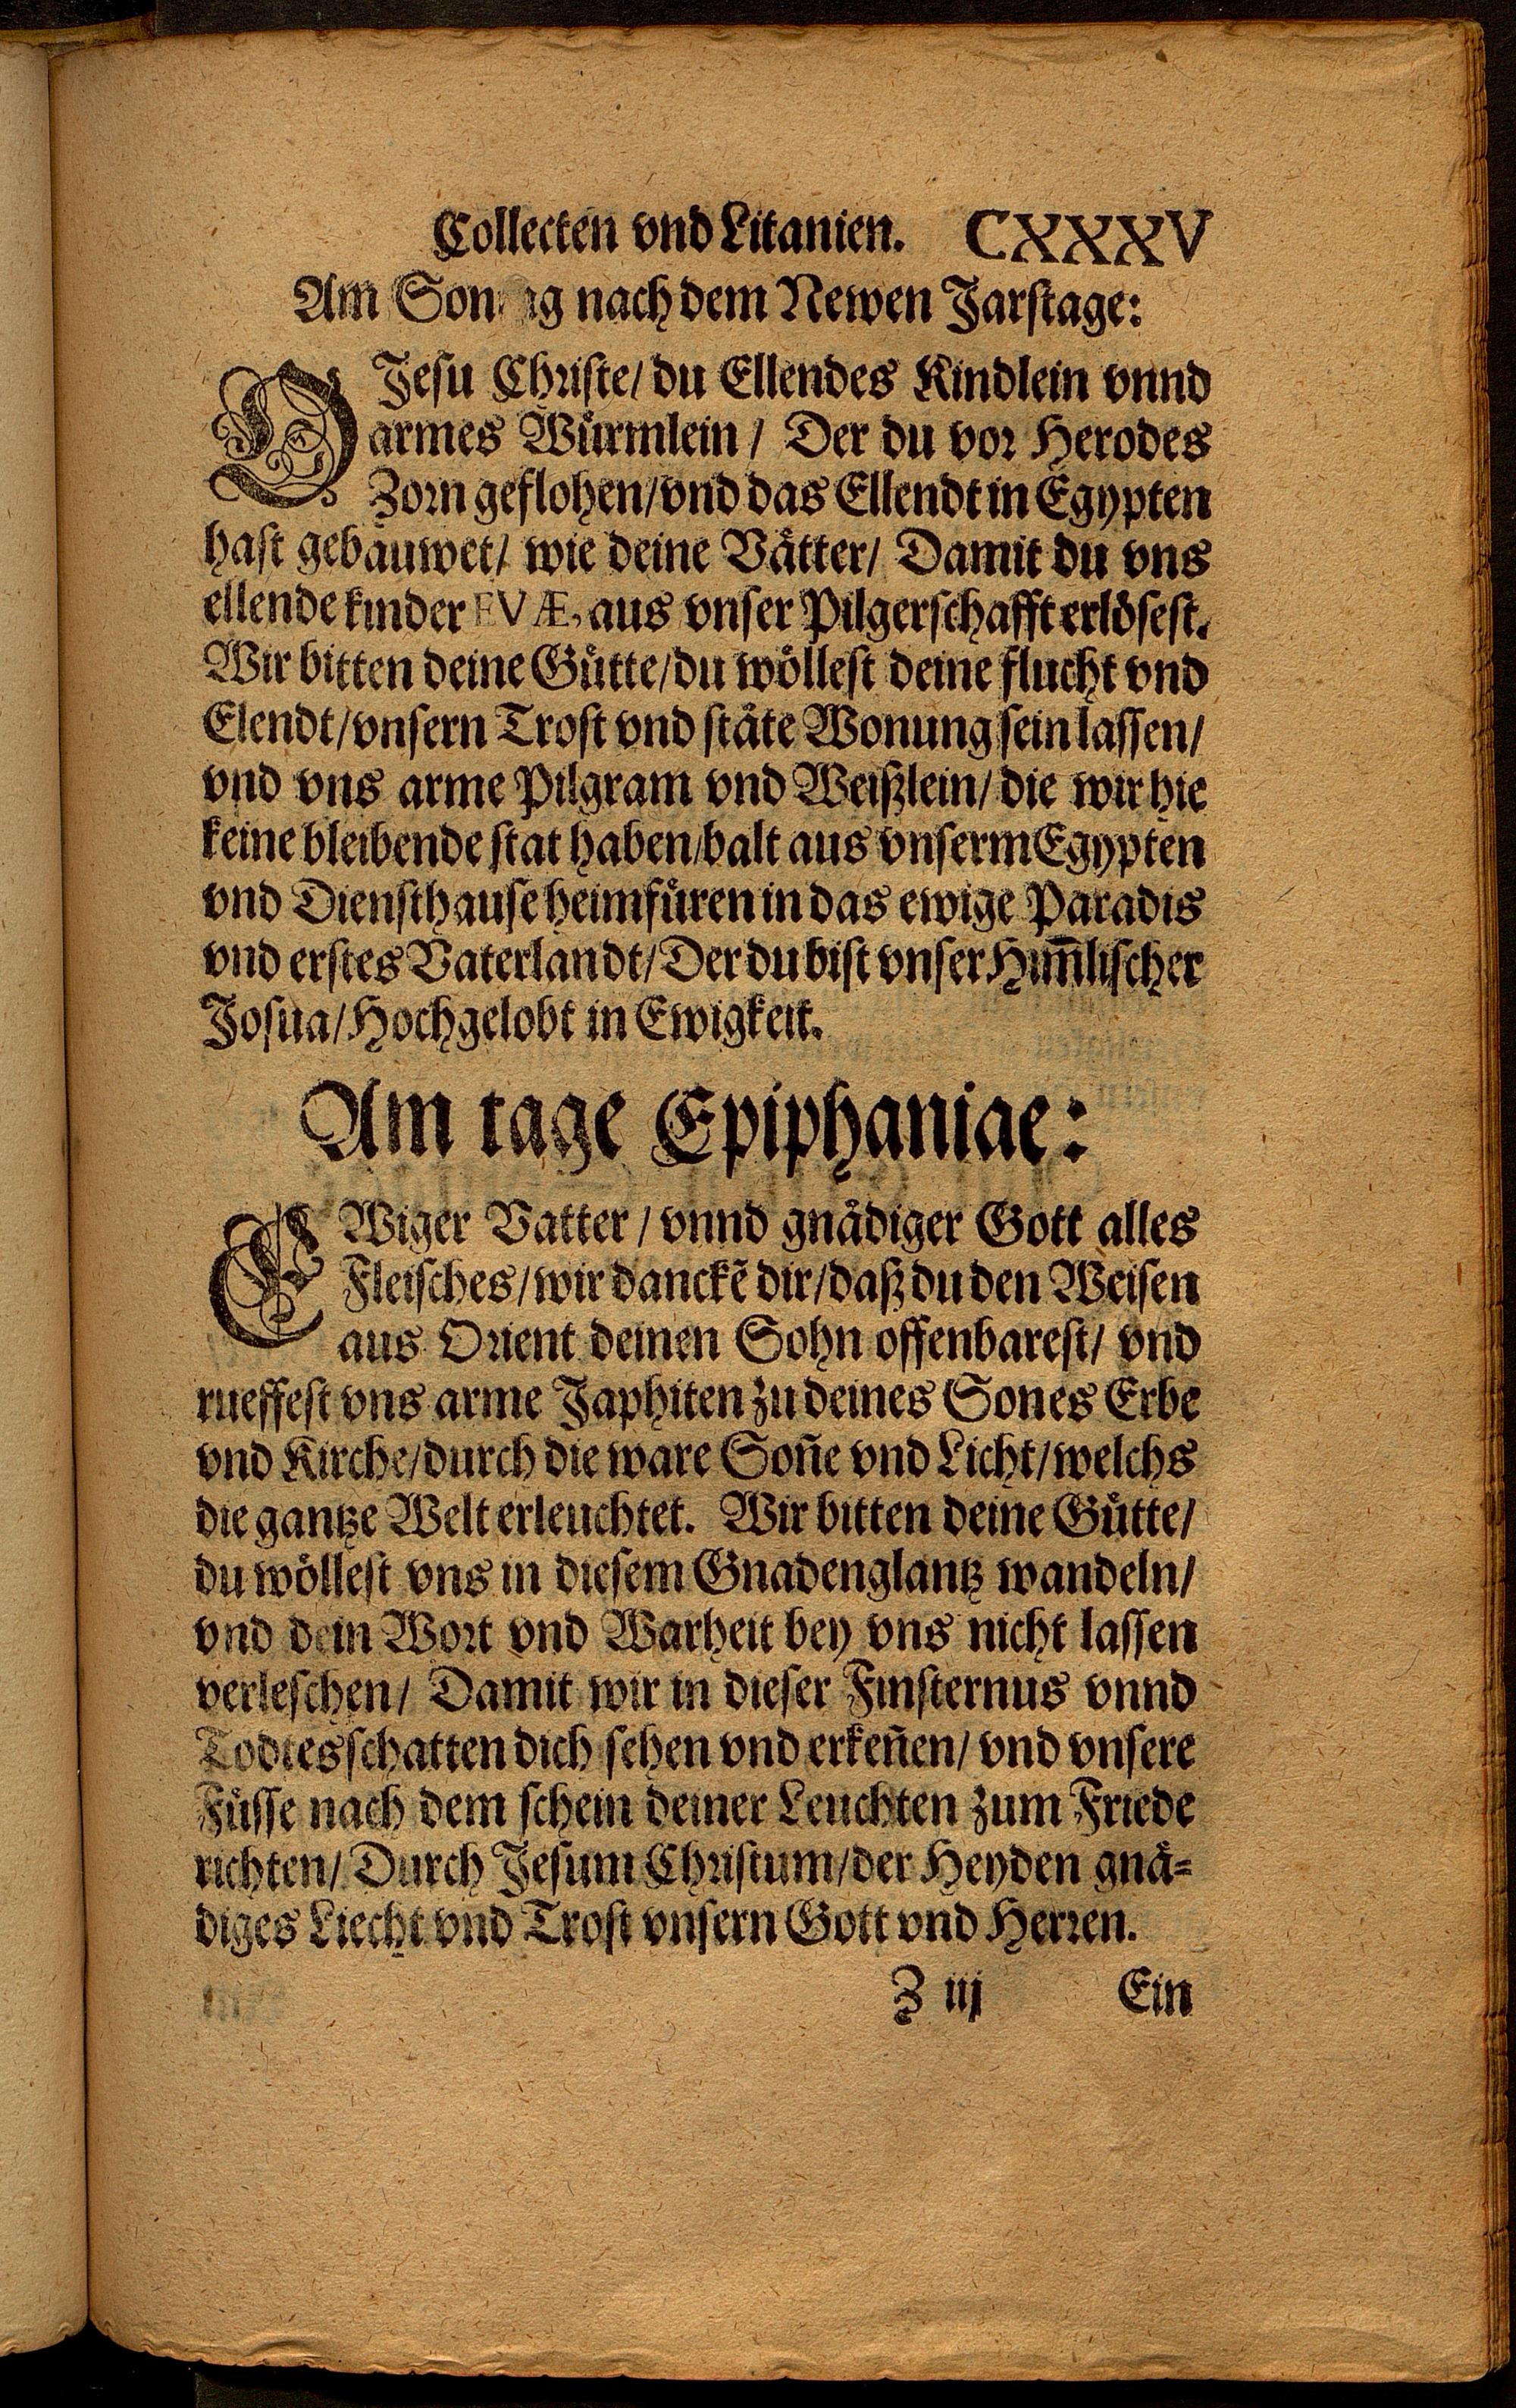 Collecten vnd Litanien. CXXXV
Am nach dem Newen Jarstage:
O Jesu Christe/ du Ellendes Kindlein vnnd
armes Würmlein/ Der du vor Herodes
Zorn geflohen/ vnd das Ellendt in Egypten
hast gebauwet/ wie deine Vätter/ Damit du vns
ellende kinder EVÆ, aus vnser Pilgerschafft erlösest.
Wir bitten deine Gütte/ du wöllest deine flucht vnd
Elendt/ vnsern Trost vnd stäte Wonung sein lassen/
vnd vns arme Pilgram vnd Weißlein/ die wir hie
keine bleibende stat haben/ balt aus vnserm Egypten
vnd Diensthause heimfüren in das ewige Paradis
vnd erstes Vaterlandt/ Der du bist vnser Him̃lischer
Josua/ Hochgelobt in Ewigkeit.
Am tage Epiphaniae:
EWiger Vatter/ vnnd gnädiger Gott alles
Fleisches/ wir danckẽ dir/ daß du den Weisen
aus Orient deinen Sohn offenbarest/ vnd
rueffest vns arme Japhiten zu deines Sones Erbe
vnd Kirche/ durch die ware Soñe vnd Licht/ welchs
die gantze Welt erleuchtet. Wir bitten deine Gütte/
du wöllest vns in diesem Gnadenglantz wandeln/
vnd dein Wort vnd Warheit bey vns nicht lassen
verleschen/ Damit wir in dieser Finsternus vnnd
Todtesschatten dich sehen vnd erkeñen/ vnd vnsere
Füsse nach dem schein deiner Leuchten zum Friede
richten/ Durch Jesum Christum/ der Heyden gnä-
diges Liecht vnd Trost vnsern Gott vnd Herren.
Z iij Ein